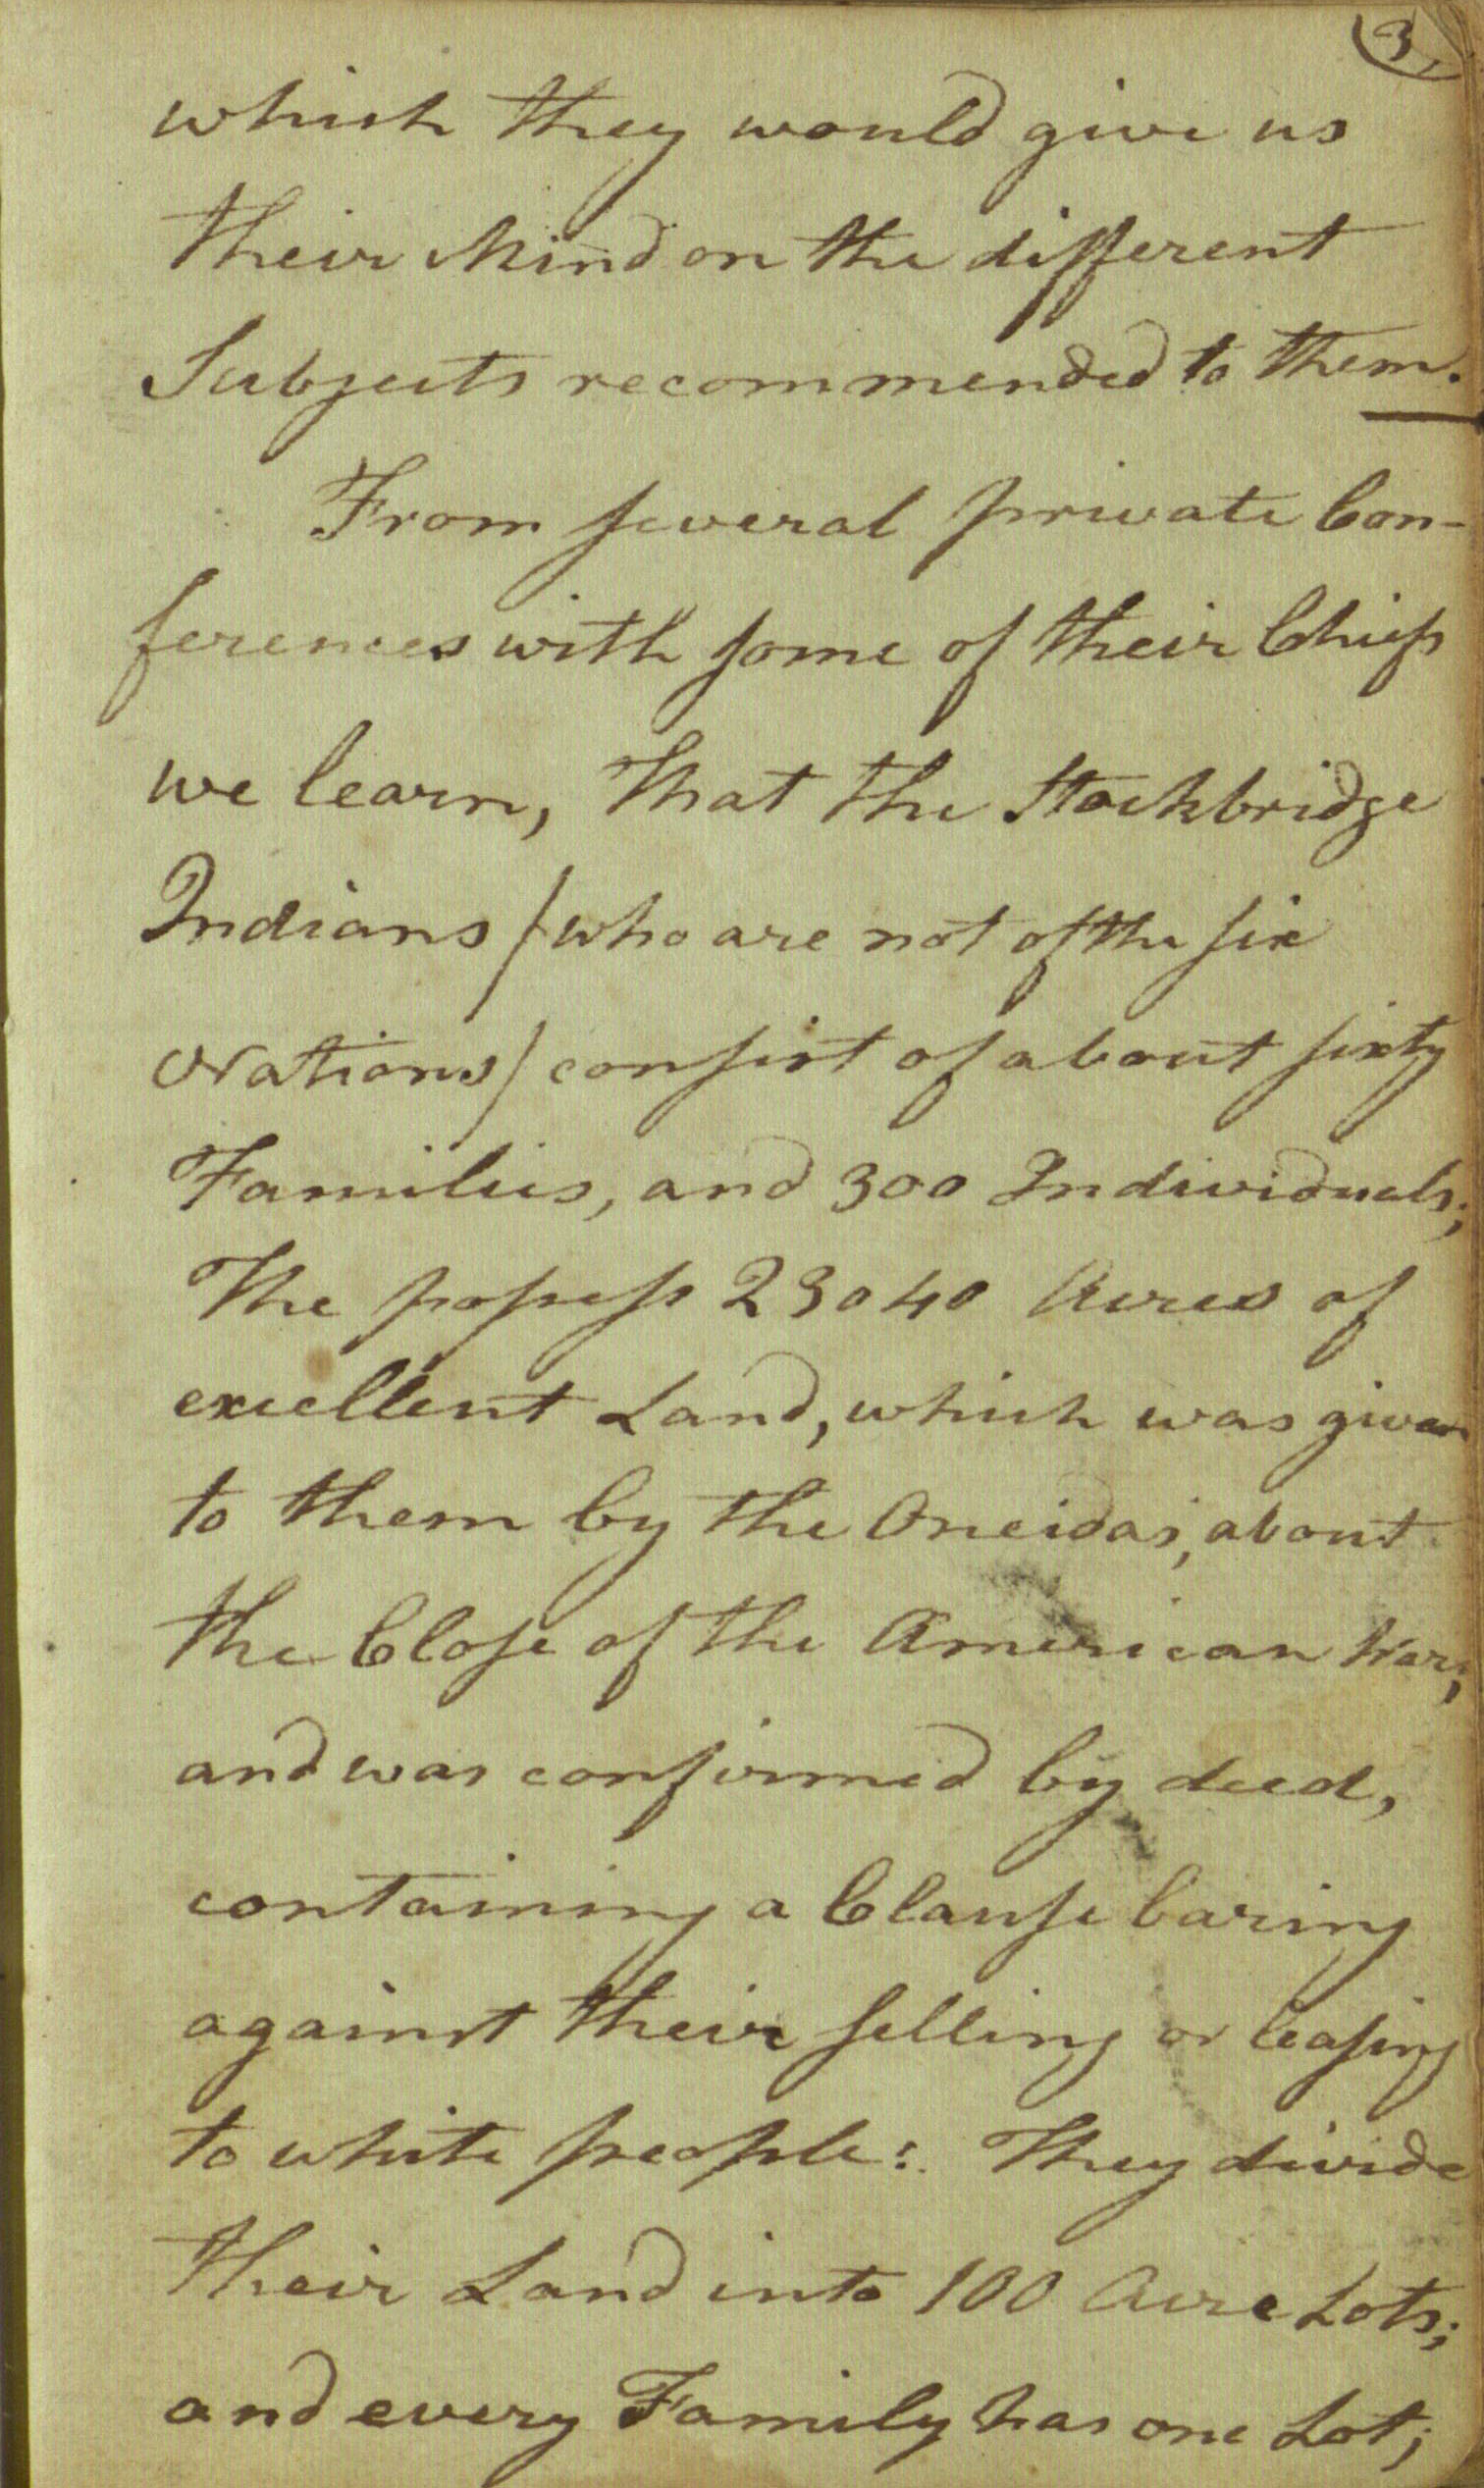 3,
which they would give us
their Mind on the different
Subjects recommended to them.
From several private Con-
ferences with some of their Chiefs
we learn, That the Stockbridge
Indians /who are not of the six
Nations/ consist of about sixty
Families, and 300 Individuals;
The possess 23040 Acres of
excellent Land, which was given
to them by the Oneidas, about
the Close of the American War;
and was confirmed by deed,
containing a Clause baring
against their selling or leasing
to white people: They divide
their Land into 100 Acre Lots;
and every Family has one Lot;